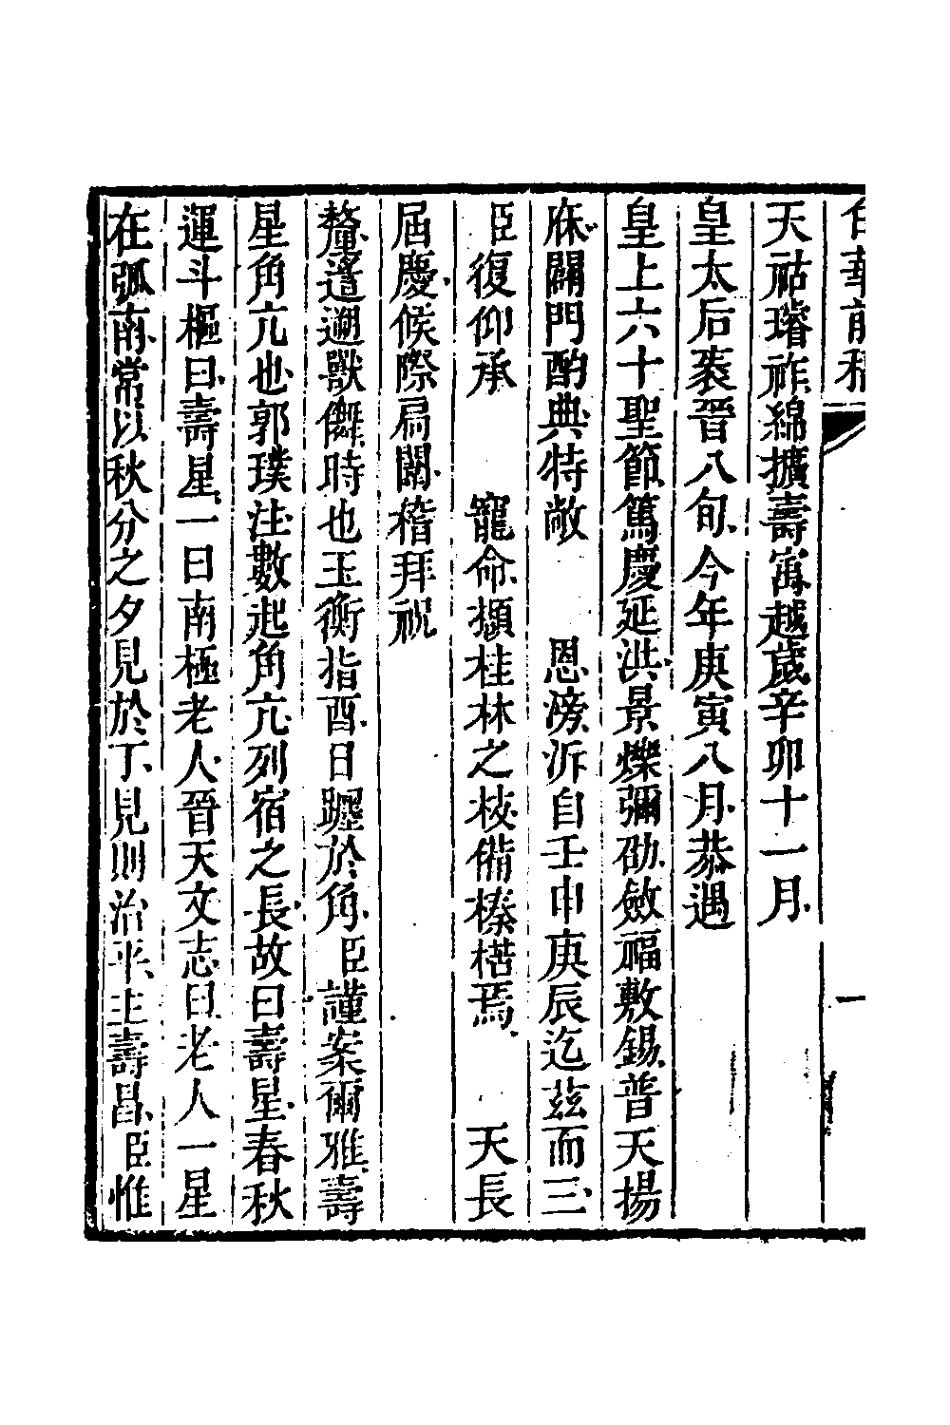 白華前稿 一
天祜璿祚綿擴壽㝢越歲辛卯十一月
皇太后袠晉八旬今年庚寅八月恭遇
皇上六十聖節篤慶延洪景爍彌劭斂福敷錫普天揚
庥闢門酌典特敞　恩滂泝自壬申庚辰迄茲而三
臣復仰承　寵命擷桂林之枝備榛楛焉　天長
屆慶候際扃闈稽拜祝
釐遳遡獸儛時也玉衡指酉日躔於角臣謹案爾雅壽
星角亢也郭璞注數起角亢列宿之長故曰壽星春秋
運斗樞曰壽星一曰南極老人晉天文志曰老人一星
在弧南常以秋分之夕見於丁見則治平主壽昌臣惟